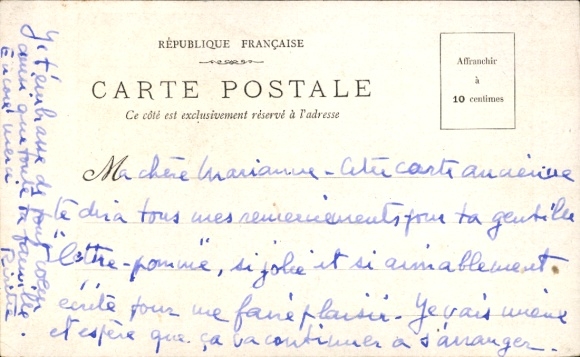 RÉPUBLIQUE FRANÇAISE
CARTE POSTALE
Ce côté est exclusivement réservé à l'adresse
Affranchir
à
10 centimes
M
Ma chère Marianne - Cette carte ancienne
te dira tous mes remerciements pour ta gentille
"lettre-pomme", si jolie et si aimablement
écrite pour me faire plaisir - Je vais mieux
et espère que ça va continuer à s'arranger -
Je t'embrasse de tout coeur
ainsi que toute ta famille.
Encore merci